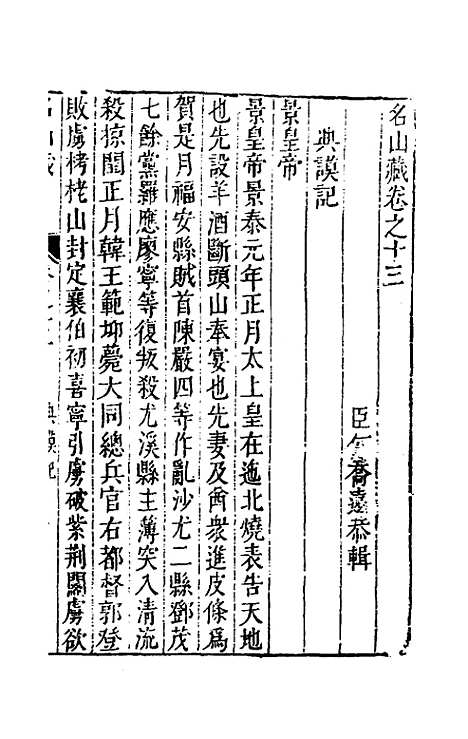 名山藏卷之十三
臣何喬遠恭輯
典謨記
景皇帝
景皇帝景泰元年正月太上皇在迤北燒表告天地
也先設羊酒斷頭山奉宴也先妻及酋衆進皮條爲
賀是月福安縣賊首陳嚴四等作亂沙尤二縣鄧茂
七餘黨羅應廖寧等復叛殺尤溪縣主薄突入清流
殺掠閏正月韓王範圠薨大同總兵官右都督郭登
敗虜栲栳山封定襄伯初喜寧引虜破紫荆關虜欲
典謨記